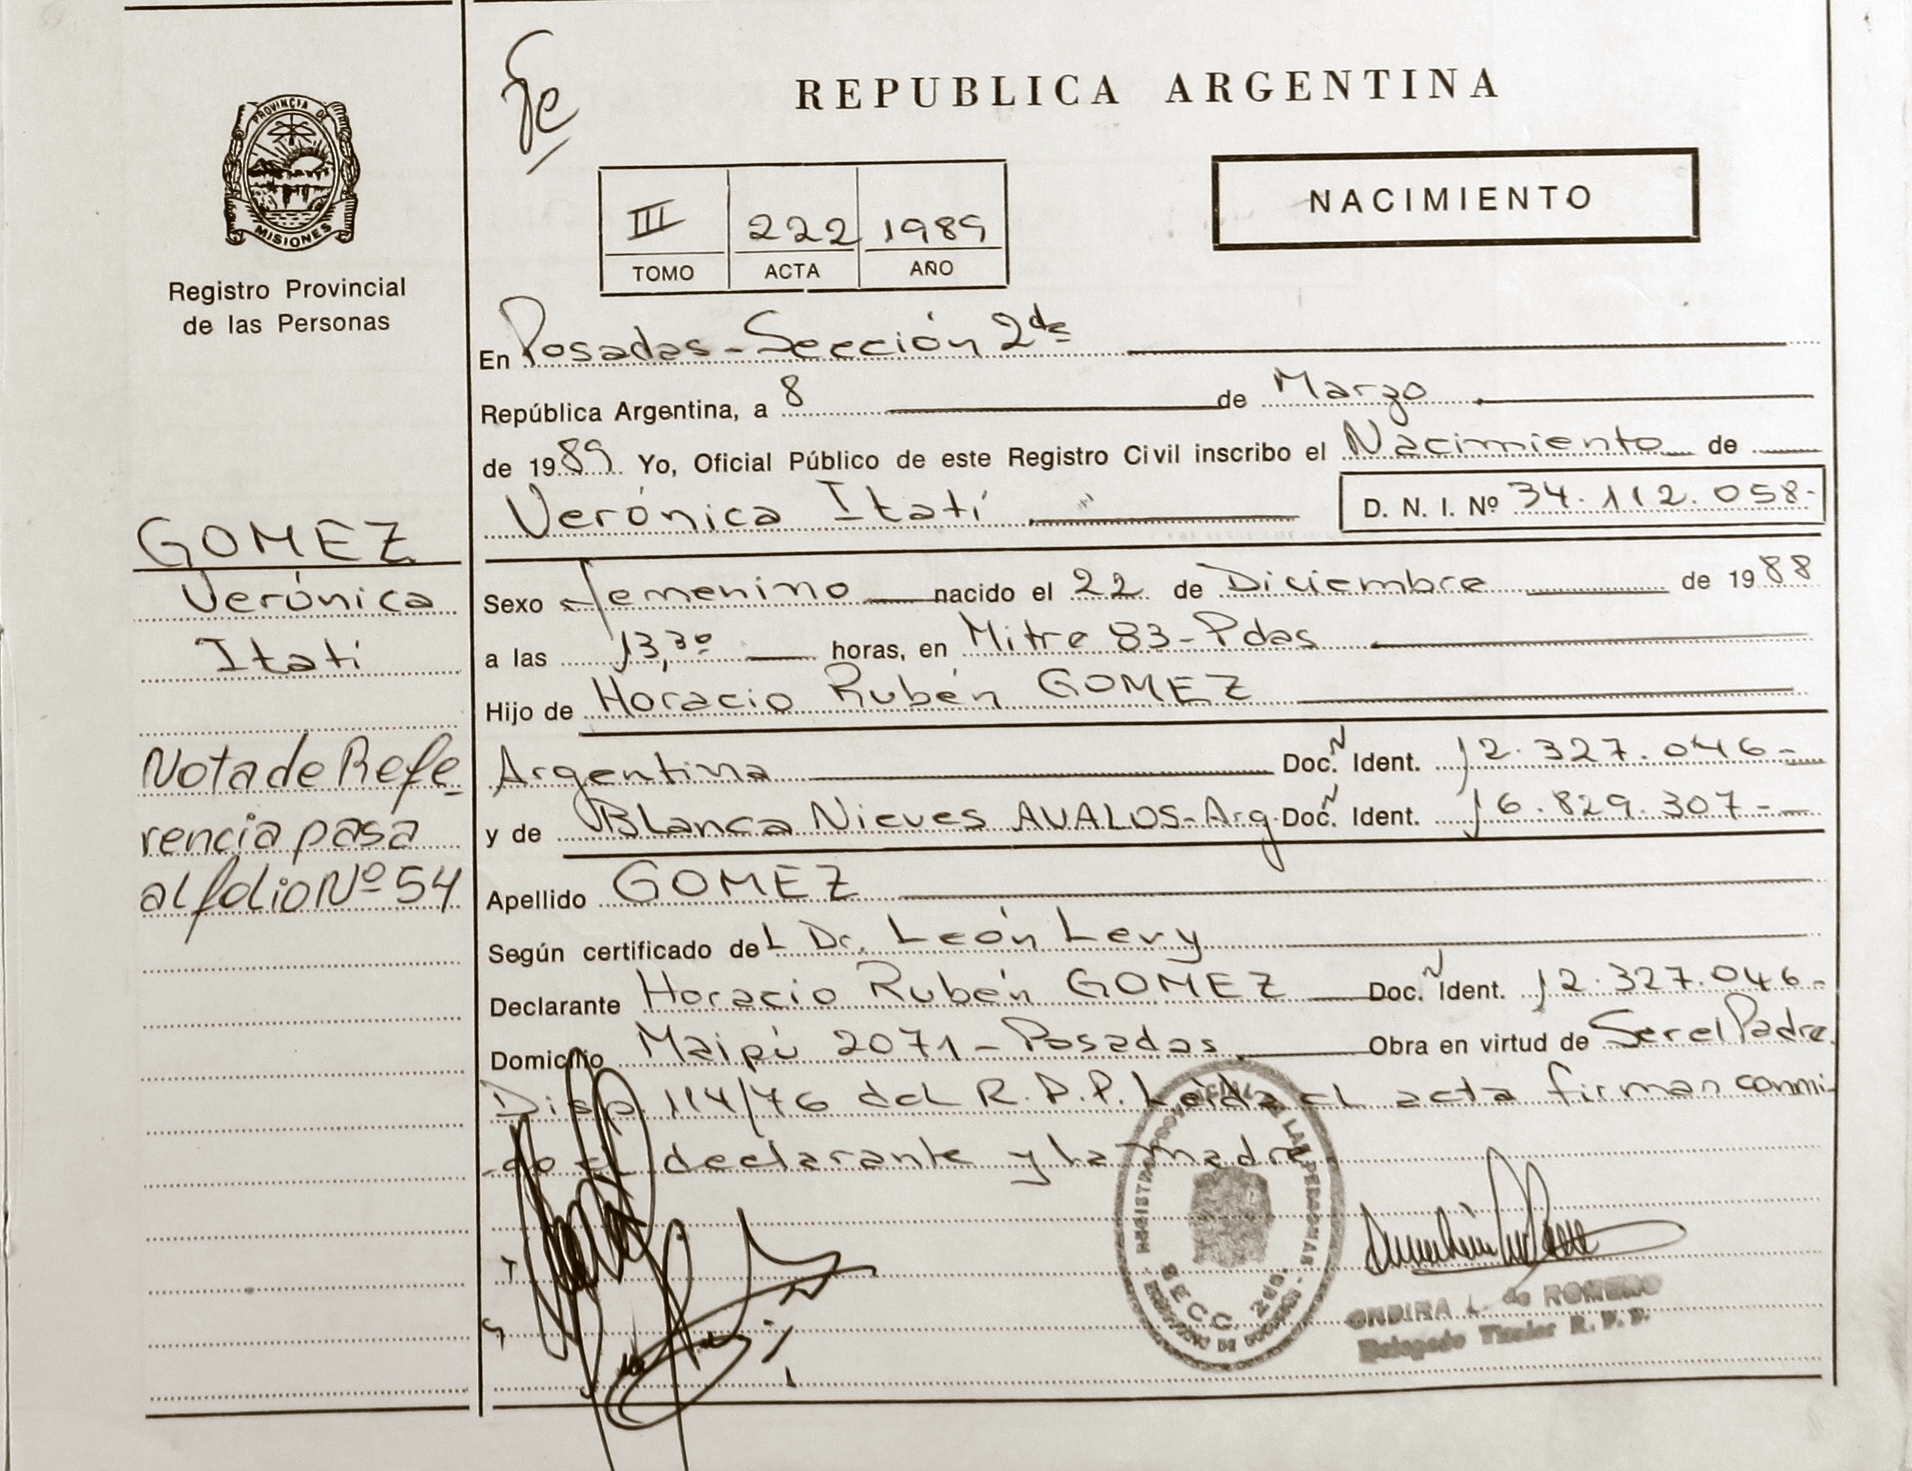 REPUBLICA ARGENTINA
PROVINCIA DE
MISIONES
Registro Provincial
de las Personas
NACIMIENTO
III 222 1989
TOMO ACTA AÑO
En Posadas - Sección 2da
República Argentina, a 8 de Marzo
de 1989 Yo, Oficial Público de este Registro Civil inscribo el Nacimiento de
Verónica Itatí D. N. I. Nº 34.112.058-
GOMEZ
Verónica
Itatí
Sexo femenino nacido el 22 de Diciembre de 1988
a las 13,30 horas, en Mitre 83 - Pdas
Hijo de Horacio Rubén GOMEZ
Argentina Doc. Ident. 12.327.046-
y de Blanca Nieves AVALOS - Arg Doc. Ident. 16.829.307-
Nota de Refe
rencia pasa
al folio Nº 54
Apellido GOMEZ
Según certificado del Dr. León Levy
Declarante Horacio Rubén GOMEZ Doc. Ident. 12.327.046-
Domicilio Maipú 2071 - Posadas Obra en virtud de Ser el Padre.
Disp. 114/76 del R.P.P. Leída el acta firman conmi-
go el declarante y la madre.
REGISTRO PROVINCIAL DE LAS PERSONAS
SECC. 2da.
ONDIRA L. de ROMERO
Delegado Titular R. P. P.